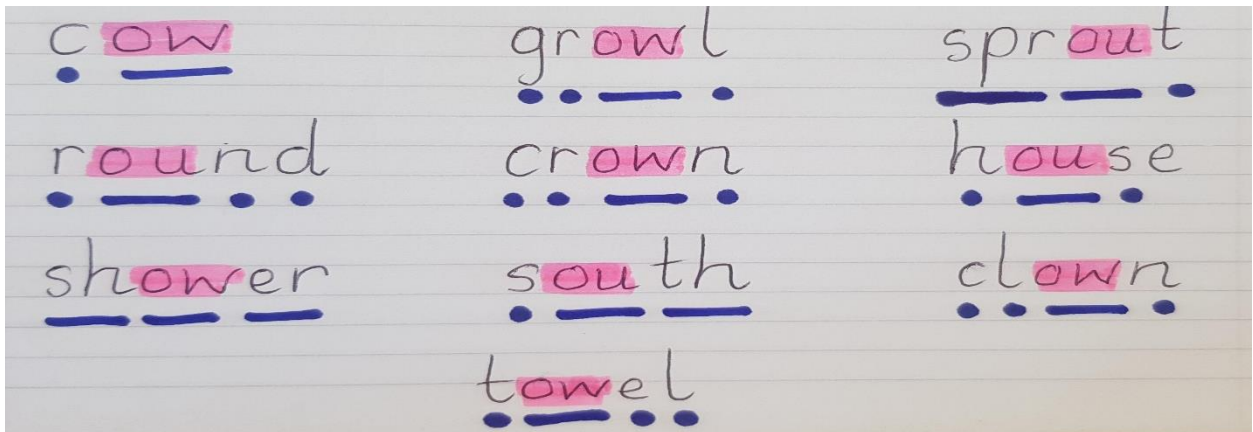 cow growl sprout
round crown house
shower south clown
towel